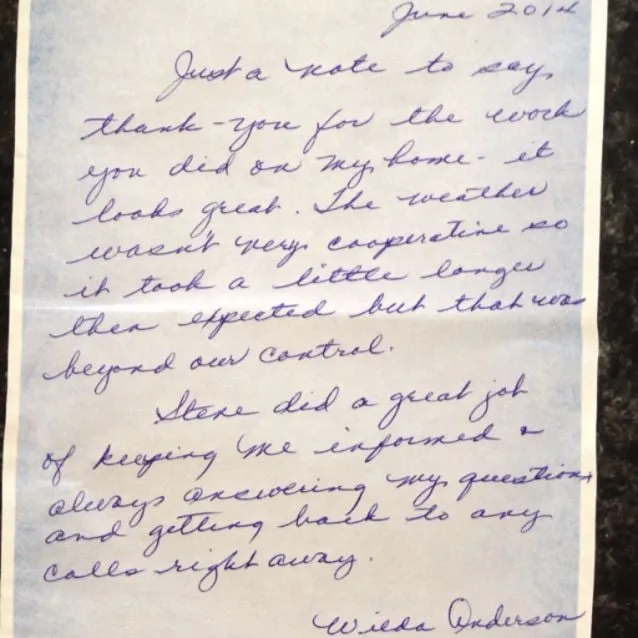 June 20th
Just a note to say
thank-you for the work
you did on my home - it
looks great. The weather
wasn't very cooperative so
it took a little longer
then expected but that was
beyond our control.
Steve did a great job
of keeping me informed &
always answering my questions
and getting back to any
calls right away.
Wilda Anderson